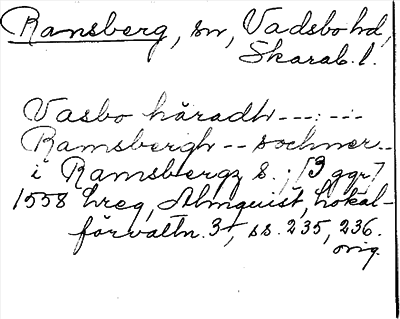 Ransberg, sn, Vadsbo hd,
Skarab. l.
Vasbo häradh --- : -:-
Ramsbergh -- sochner --
i Ramsbergz S. ; [3 ggr]
1558 Lreg, Almquist, Lokal-
förvaltn. 3, ss. 235, 236.
orig.